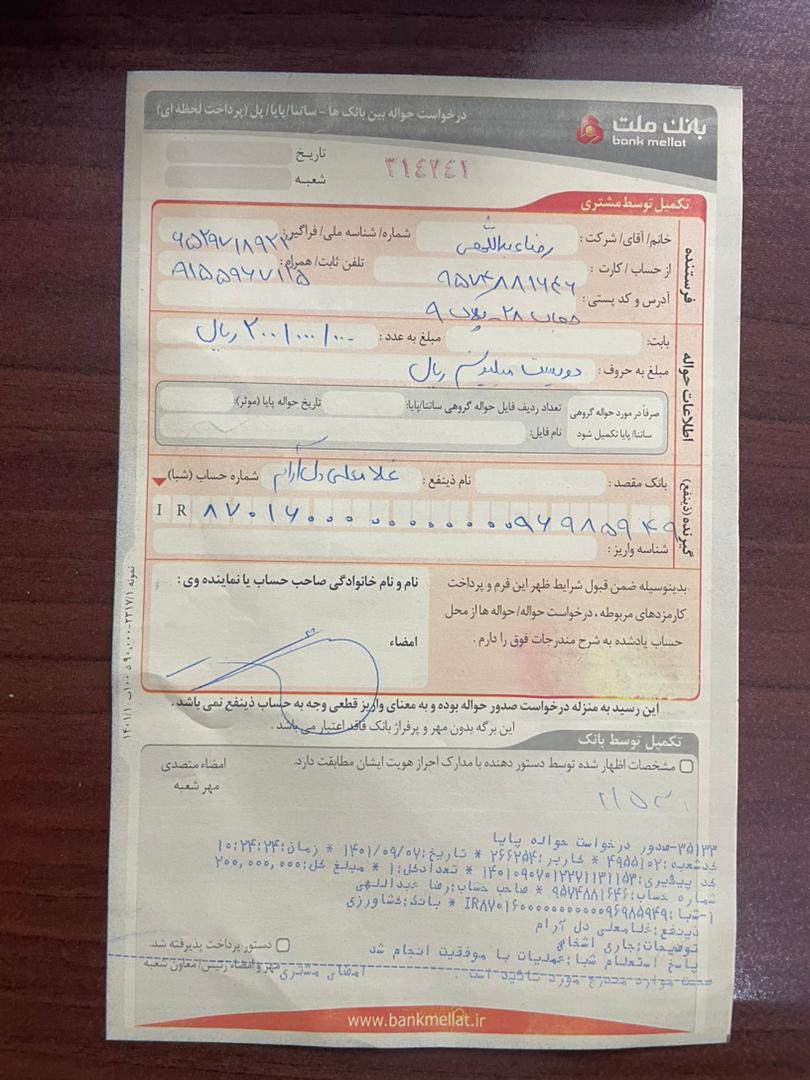 درخواست حواله بین بانک ها - ساتنا/پایا/ پل (پرداخت لحظه ای)
بانک ملت
bank mellat
تاریخ
شعبه
۳۱٤۲٤۱
تکمیل توسط مشتری
فرستنده
خانم/ آقای/ شرکت: رضا عبداللهی شماره/ شناسه ملی/ فراگیر:
از حساب / کارت: ۹۵۷۴۸۸۱۶۴۶ تلفن ثابت/ همراه: ۹۱۵۵۹۶۷۱۱۵
آدرس و کد پستی: ۲۸ - پلاک ۹
اطلاعات حواله
بابت: مبلغ به عدد: ۲۰۰/۰۰۰/۰۰۰ ریال
مبلغ به حروف: دویست میلیون ریال
صرفاً در مورد حواله گروهی ساتنا/ پایا تکمیل شود
تعداد ردیف فایل حواله گروهی ساتنا/پایا: تاریخ حواله پایا (موثر):
نام فایل:
گیرنده (ذینفع)
بانک مقصد: نام ذینفع: غلامعلی دل آرام شماره حساب (شبا):
IR ۸۷۰۱۶۰۰۰۰۰۰۰۰۰۰۰۰۹۶۹۸۵۹۴۹
شناسه واریز:
بدینوسیله ضمن قبول شرایط ظهر این فرم و پرداخت
کارمزدهای مربوطه، درخواست حواله/ حواله ها از محل
حساب یادشده به شرح مندرجات فوق را دارم.
نام و نام خانوادگی صاحب حساب یا نماینده وی:
امضاء
این رسید به منزله درخواست صدور حواله بوده و به معنای واریز قطعی وجه به حساب ذینفع نمی باشد.
این برگه بدون مهر و پرفراژ بانک فاقد اعتبار می باشد.
تکمیل توسط بانک
مشخصات اظهار شده توسط دستور دهنده با مدارک احراز هویت ایشان مطابقت دارد.
امضاء متصدی
مهر شعبه
۳۵۱۳۳-صدور درخواست حواله پایا
کدشعبه:۴۹۵۵۱۰۲ * کاربر:۲۶۶۲۵۴ * تاریخ:۱۴۰۱/۰۹/۰۷ * زمان:۱۰:۲۴:۲۴
کد پیگیری:۱۴۰۱۰۹۰۷۰۱۲۲۷۱۱۳۱۱۵۳ * تعدادکل:۱ * مبلغ کل:۲۰۰,۰۰۰,۰۰۰
شماره حساب:۹۵۷۴۸۸۱۶۴۶ * صاحب حساب:رضا عبداللهی
۱-شبا:IR۸۷۰۱۶۰۰۰۰۰۰۰۰۰۰۰۰۹۶۹۸۵۹۴۹ * بانک:کشاورزی
ذینفع:غلامعلی دل آرام
توضیحات:جاری اشخاص
پاسخ استعلام شبا:عملیات با موفقیت انجام شد
صحت موارد مندرج مورد تائید است. امضای مشتری
دستور پرداخت پذیرفته شد.
مهر و امضاء رئیس/ معاون شعبه
www.bankmellat.ir